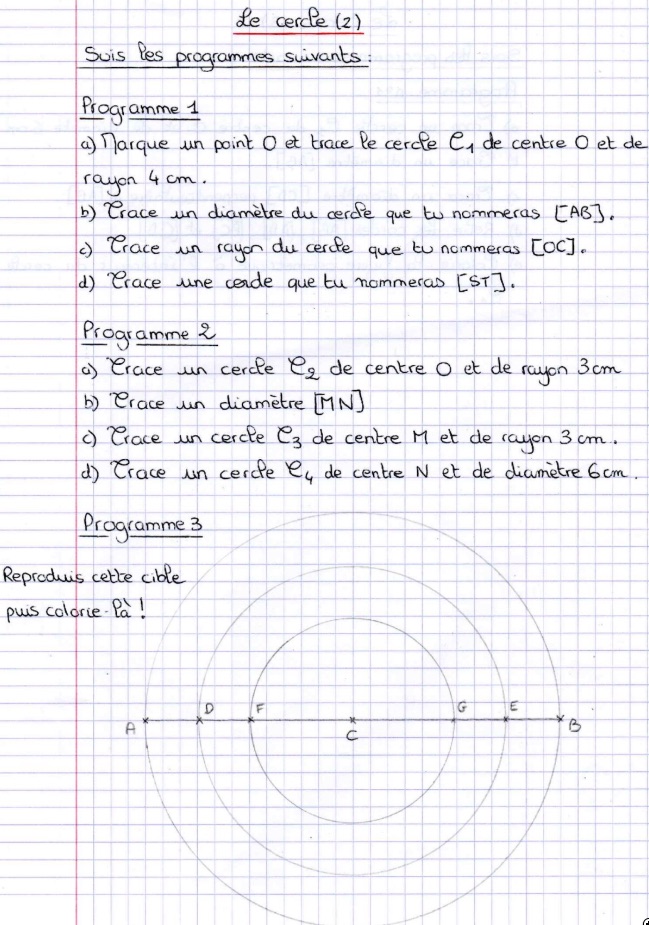 Le cercle (2)
Suis les programmes suivants :
Programme 1
a) Marque un point O et trace le cercle C₁ de centre O et de
rayon 4 cm.
b) Trace un diamètre du cercle que tu nommeras [AB].
c) Trace un rayon du cercle que tu nommeras [OC].
d) Trace une corde que tu nommeras [ST].
Programme 2
a) Trace un cercle C₂ de centre O et de rayon 3 cm
b) Trace un diamètre [MN]
c) Trace un cercle C₃ de centre M et de rayon 3 cm.
d) Trace un cercle C₄ de centre N et de diamètre 6 cm.
Programme 3
Reproduis cette cible
puis colorie-là !
A D F C G E B